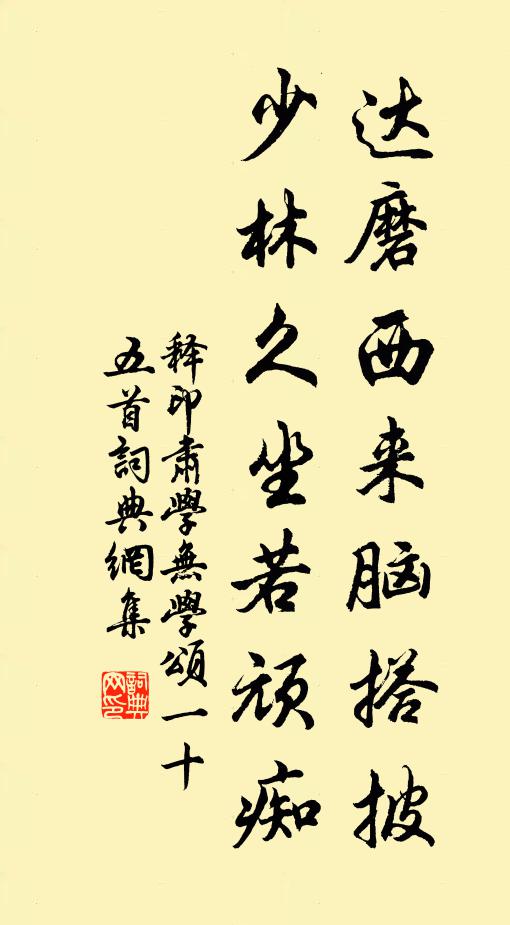 达磨西来脑搭披
少林久坐若顽痴
释印肃學無學頌一十
五首詞典網集
詞典网印